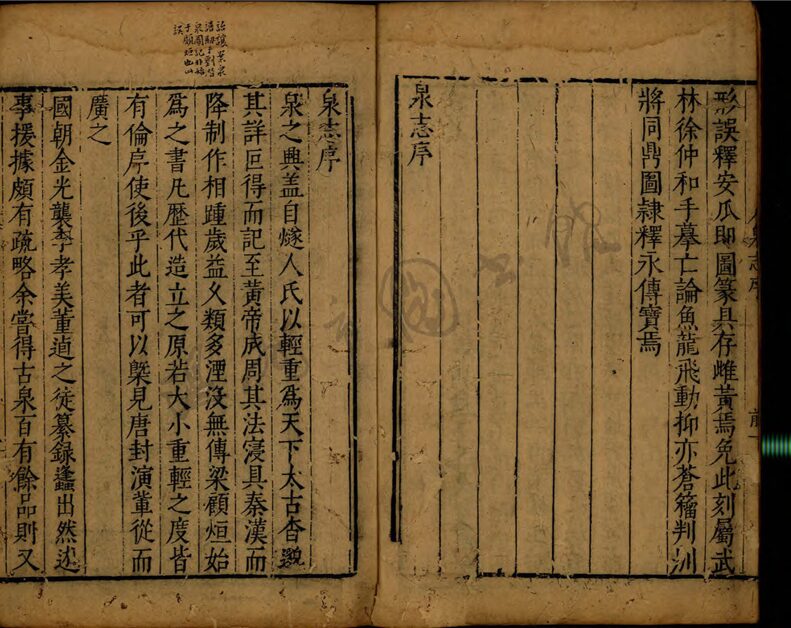 形誤釋安瓜即圖篆具存雌黃焉免此刻屬武
林徐仲和手摹亡論魚龍飛動抑亦蒼籀判沠
將同鼎圖隷釋永傳寶焉
泉志序
泉志序
泉之興蓋自燧人氏以輕重爲天下太古杳邈
其詳叵得而記至黃帝成周其法寖具秦漢而
降制作相踵歲益乂類多湮沒無傳梁顧烜始
爲之書凡歷代造立之原若大小重輕之度皆
有倫序使後乎此者可以槩見唐封演軰從而
廣之
國朝金光襲李孝美董逌之徒纂録蠭出然述
事援據頗有疏略余嘗得古泉百有餘品則又